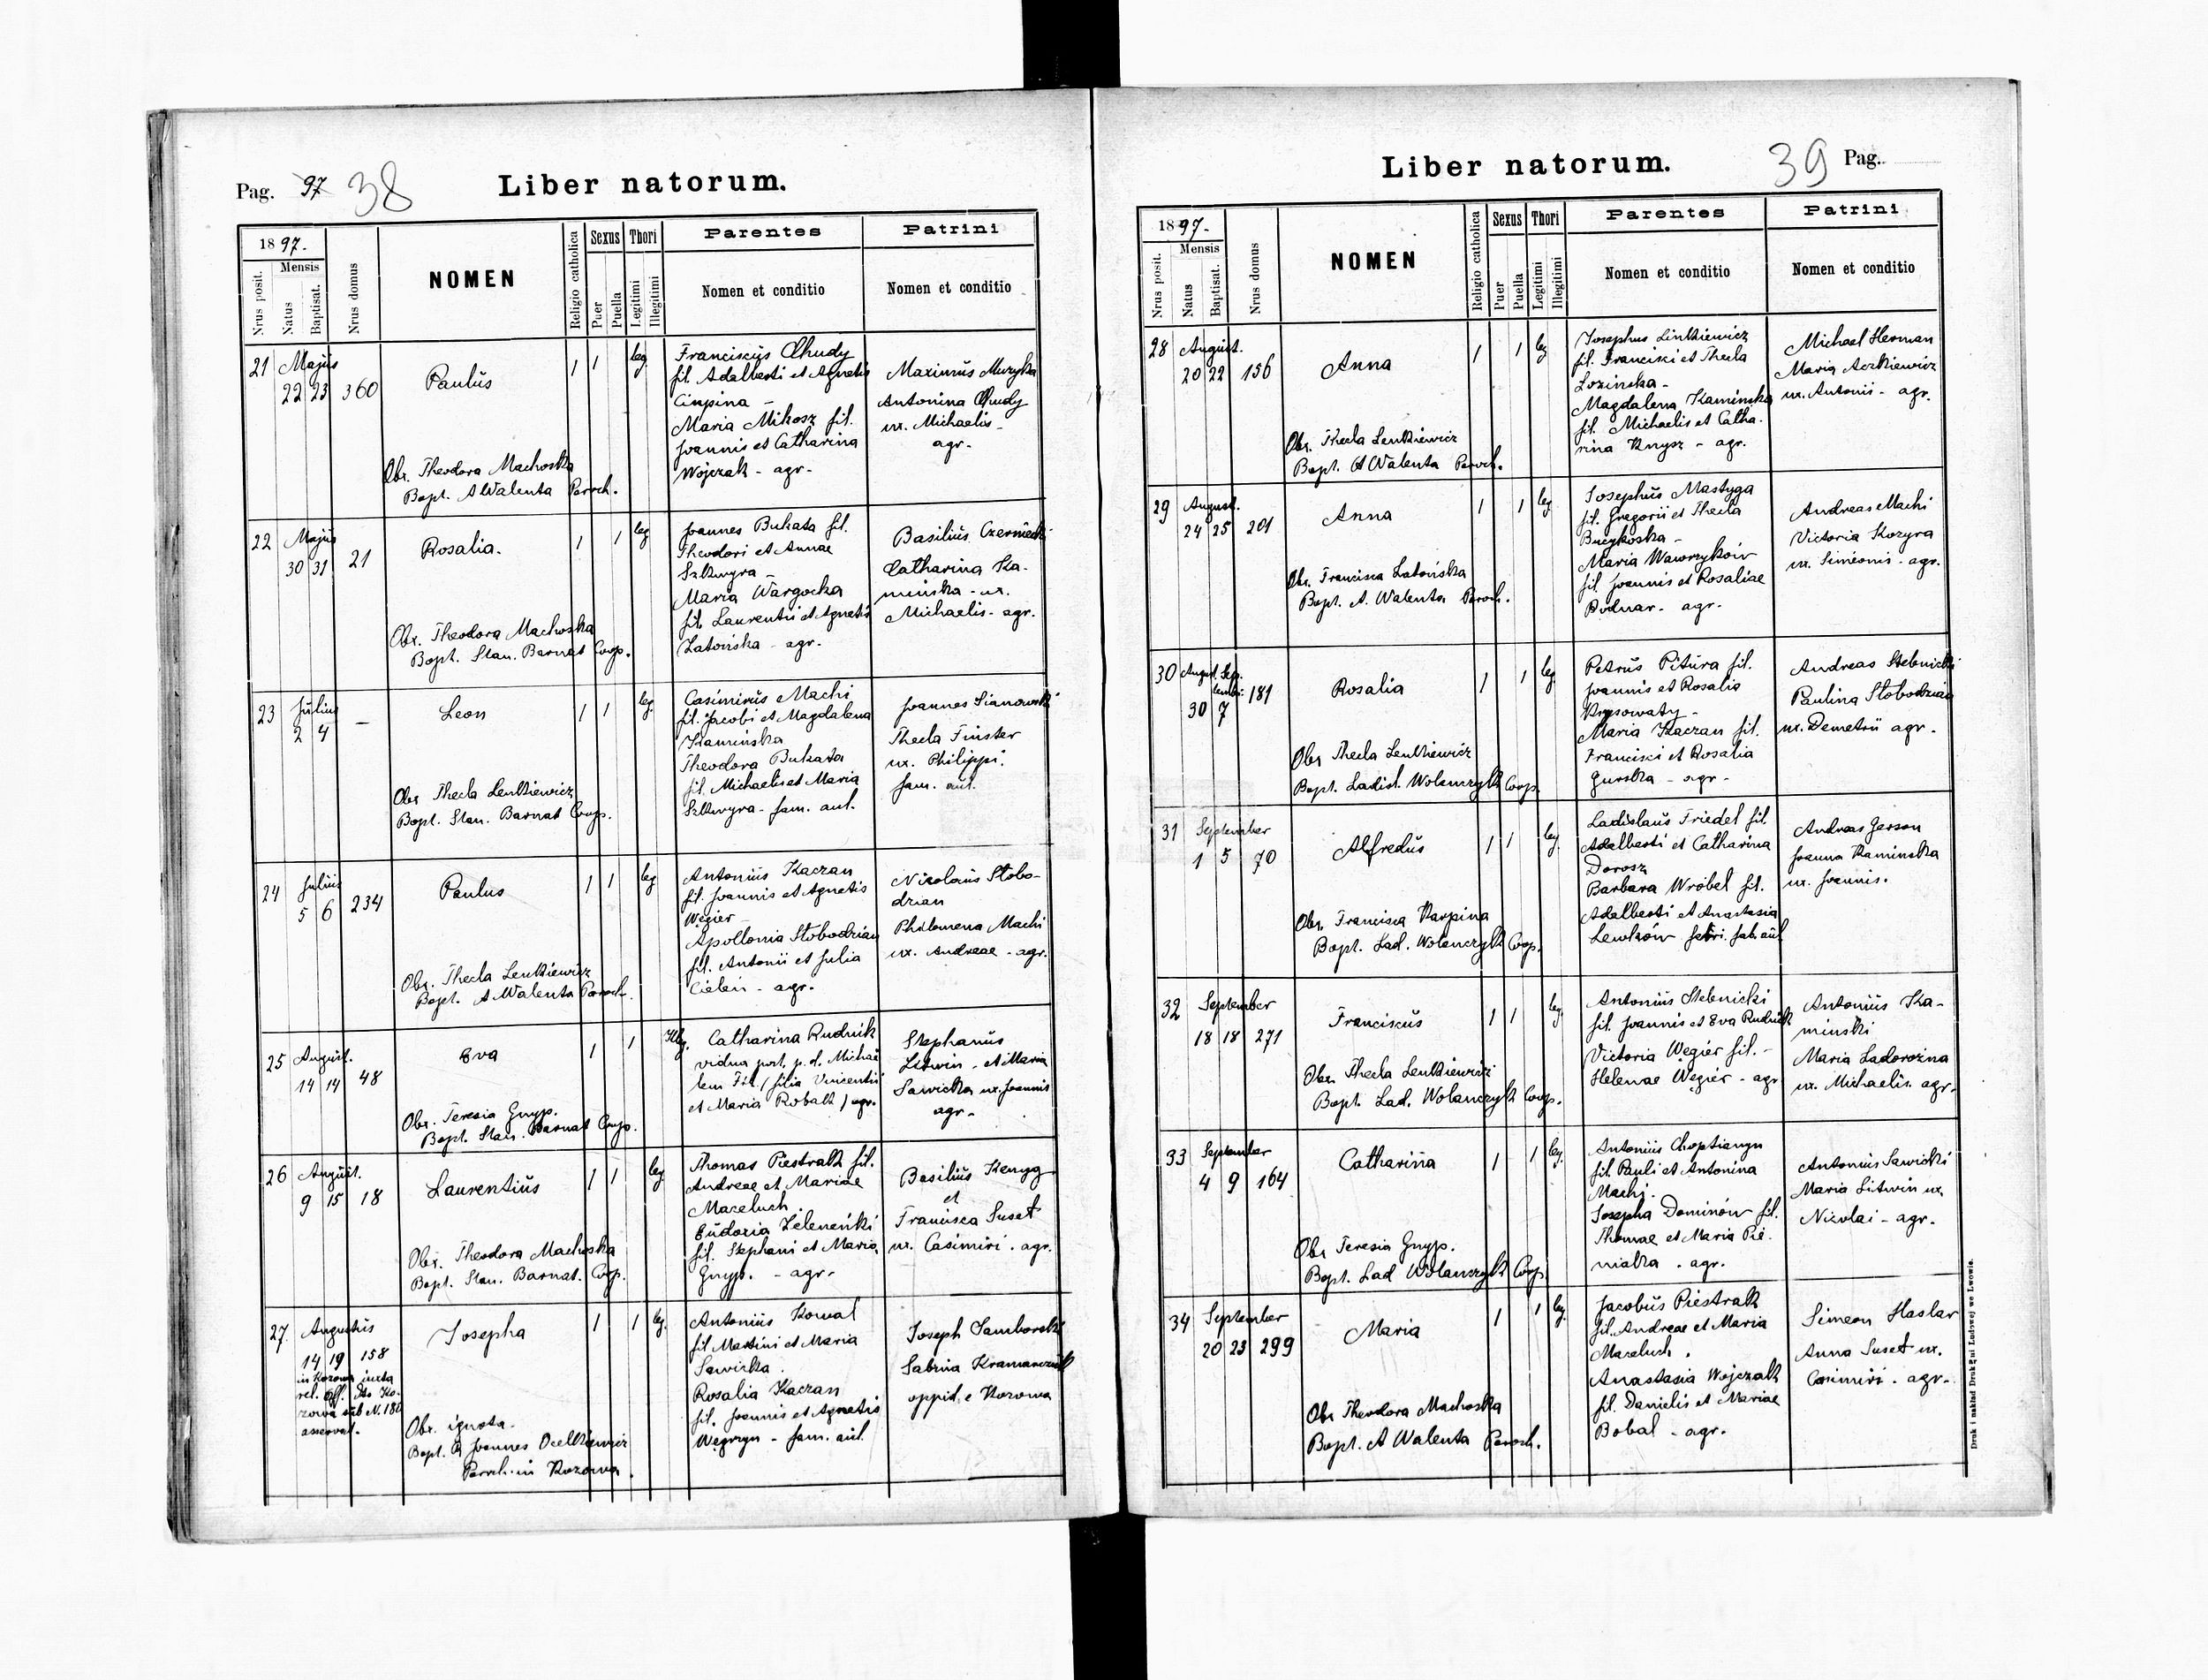 Pag. 97 38
Liber natorum.
1897.
Nrus posit.
Mensis
Natus
Baptisat.
Nrus domus
NOMEN
Religio catholica
Sexus
Puer
Puella
Thori
Legitimi
Illegitimi
Parentes
Nomen et conditio
Patrini
Nomen et conditio
21 Majus
22 23 360
Paulus
1 1 leg
Obx. Theodora Machoska
Bapt. A Walenta Paroch.
Franciscus Chudy
fil. Adalberti et Agnetis
Cinpina -
Maria Mikosz fil.
Joannis et Catharina
Wojczak - agr.
Maximus Muzyka
Antonina Chudy
ux. Michaelis -
agr.
22 Majus
30 31 21
Rosalia.
1 1 leg
Obx. Theodora Machoska
Bapt. Stan. Barnat Coop.
Joannes Bukata fil.
Theodori et Annae
Szkwyra -
Maria Wargocka
fil. Laurentii et Agnetis
Latoińska - agr.
Basilius Czerniecki
Catharina Ka-
minska - ux.
Michaelis - agr.
23 Julius
2 4 -
Leon
1 1 leg.
Obx Thecla Lenkiewicz
Bapt. Stan. Barnat Coop.
Casimirus Machi
fil. Jacobi et Magdalena
Kamińska
Theodora Bukata
fil. Michaelis et Maria
Szkwyra - fam. aul.
Joannes Sianowski
Thecla Finster
ux. Philippi.
fam. aul.
24 Julius
5 6 234
Paulus
1 1 leg
Obx. Thecla Lenkiewicz
Bapt. A Walenta Paroch.
Antonius Kaczan
fil. Joannis et Agnetis
Węgier -
Apollonia Słobodzian
fil. Antonii et Julia
Cielen - agr.
Nicolaus Słobo-
dzian
Philomena Machi
ux. Andreae - agr.
25 August.
14 14 48
Eva
1 1 Illeg.
Obx. Teresia Gnyp.
Bapt. Stan. Barnat Coop.
Catharina Rudnik
vidua post p. d. Michae
lem / filia Vincentii
et Maria Robak / agr.
Stephanus
Litwin - et Maria
Sawicka ux. Joannis
agr.
26 August.
9 15 18
Laurentius
1 1 leg
Obx. Theodora Machoska
Bapt. Stan. Barnat. Coop.
Thomas Piestrak fil.
Andreae et Mariae
Maceluch.
Eudoxia Zelenenki
fil. Stephani et Maria
Gnyp. - agr.
Basilius Kenyg
et
Francisca Suset
ux. Casimiri . agr.
27. Augustus
14 19 158
in Kozowa juxta
rel. off. dto Ko-
zowa sub N. 180
asserval.
Josepha
1 1 leg.
Obx. ignota.
Bapt. Joannes Ocetkiewicz
Paroch. in Kozowa.
Antonius Kowal
fil Martini et Maria
Sawicka.
Rosalia Kaczan
fil. Joannis et Agnetis
Węgrzyn - fam. aul.
Joseph Samborski
Sabina Kramarczuk
oppid. e Kozowa
Liber natorum.
39 Pag.
1897.
Nrus posit.
Mensis
Natus
Baptisat.
Nrus domus
NOMEN
Religio catholica
Sexus
Puer
Puella
Thori
Legitimi
Illegitimi
Parentes
Nomen et conditio
Patrini
Nomen et conditio
28 August.
20 22 156
Anna
1 1 leg
Obx. Thecla Lenkiewicz
Bapt. A Walenta Paroch.
Josephus Linkiewicz
fil. Francisci et Thecla
Lozinska -
Magdalena Kaminska
fil. Michaelis et Catha.
rina Knysz - agr.
Michael Herman
Maria Aczkiewicz
ux. Antonii - agr.
29 August.
24 25 201
Anna
1 1 leg
Obx. Francisca Latońska
Bapt. A. Walenta Paroch.
Josephus Mastyga
fil. Gregorii et Thecla
Buczkoska -
Maria Wawrzyków
fil. Joannis et Rosaliae
Bodnar - agr.
Andreas Machi
Victoria Kozyra
ux. Simeonis - agr.
30 August. Sep.
tembr.
30 7 181
Rosalia
1 1 leg
Obx Thecla Lenkiewicz
Bapt. Ladisl. Wolanczyk Coop.
Petrus Pitura fil.
Joannis et Rosalia
Krysowaty -
Maria Kaczan fil.
Francisci et Rosalia
Gurska - agr -
Andreas Stebnicki
Paulina Słobodzian
ux. Demetrii agr.
31 September
1 5 70
Alfredus
1 1 leg.
Obx. Francisca Karpina
Bapt. Lad. Wolanczyk Coop.
Ladislaus Friedel fil.
Adalberti et Catharina
Dorosz
Barbara Wróbel fil.
Adalberti et Anastasia
Lewków fabri. fab. aul
Andreas Gerson
Joanna Kaminska
ux. Joannis.
32 September
18 18 271
Franciscus
1 1 leg.
Obx. Thecla Lenkiewicz
Bapt. Lad. Wolanczyk Coop.
Antonius Stebnicki
fil. Joannis et Eva Rudnik
Victoria Węgier fil. -
Helenae Węgier - agr
Antonius Ka-
minski
Maria Zadorożna
ux. Michaelis. agr.
33 September
4 9 164
Catharina
1 1 leg.
Obx Teresia Gnyp.
Bapt. Lad Wolanczyk Coop
Antonius Choptianyn
fil Pauli et Antonina
Machi.
Josepha Dominów fil.
Thomae et Maria Pie.
niatka . agr.
Antonius Sawicki
Maria Litwin ux.
Nicolai - agr.
34 September
20 23 299
Maria
1 1 leg.
Obx Theodora Machoska
Bapt. A Walenta Paroch.
Jacobus Piestrak
fil. Andreae et Maria
Maceluch.
Anastasia Wojczak
fil. Danielis et Mariae
Bobal - agr.
Simeon Haslar
Anna Suset ux.
Casimiri . agr.
Druk i nakład Drukarni Ludowej we Lwowie.